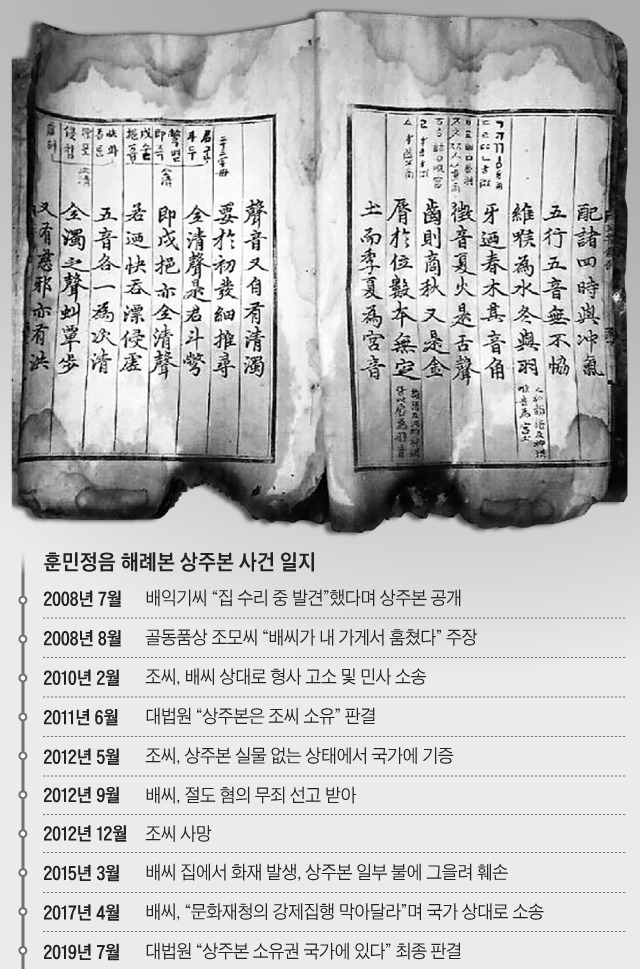 配諸四時與冲氣
五行五音無不恊
維喉為水冬與羽
牙迺春木其音角
徵音夏火是舌聲
齒則商秋又是金
脣於位數本無定
土而季夏為宮音
聲音又自有清濁
要於初發細推尋
全清聲是君斗彆
即戌挹亦全清聲
若迺快吞漂侵虛
五音各一為次清
全濁之聲虯覃步
又有慈邪亦有洪
훈민정음 해례본 상주본 사건 일지
2008년 7월 배익기씨 “집 수리 중 발견”했다며 상주본 공개
2008년 8월 골동품상 조모씨 “배씨가 내 가게서 훔쳤다” 주장
2010년 2월 조씨, 배씨 상대로 형사 고소 및 민사 소송
2011년 6월 대법원 “상주본은 조씨 소유” 판결
2012년 5월 조씨, 상주본 실물 없는 상태에서 국가에 기증
2012년 9월 배씨, 절도 혐의 무죄 선고 받아
2012년 12월 조씨 사망
2015년 3월 배씨 집에서 화재 발생, 상주본 일부 불에 그을려 훼손
2017년 4월 배씨, “문화재청의 강제집행 막아달라”며 국가 상대로 소송
2019년 7월 대법원 “상주본 소유권 국가에 있다” 최종 판결